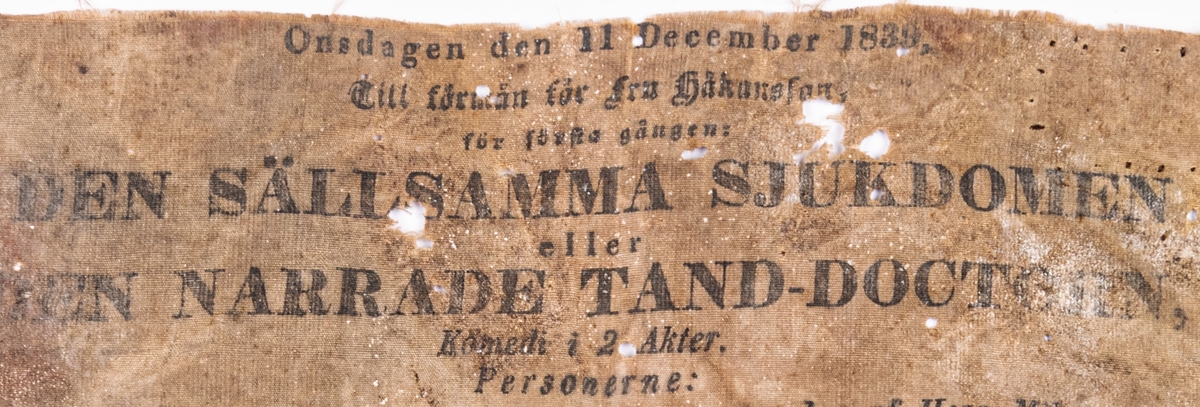 Onsdagen den 11 December 1839,
Till förmån för Fru Håkansson,
för första gången:
DEN SÄLLSAMMA SJUKDOMEN
eller
DEN NARRADE TAND-DOCTORN,
Komedi i 2 Akter.
Personerne:
af Herr